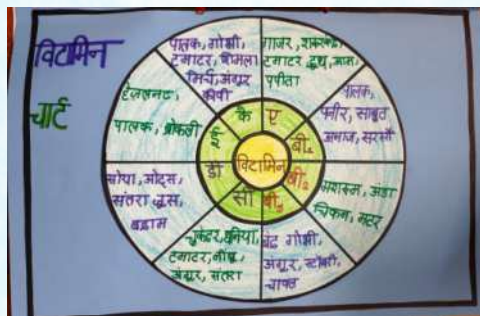 विटामिन
चार्ट
विटामिन
ए
बी₁
बी₂
बी₃
सी
डी
ई
के
गाजर, शकरकंद,
टमाटर दूध, आम,
पपीता
पालक,
पनीर, साबुत
अनाज, सरसों
मशरूम, अंडा
चिकन, मटर
बंद गोभी,
अंगूर, स्टॉबरी,
चावल
चुकंदर, धनिया,
टमाटर, नींबू,
अंगूर, संतरा
सोया, ओट्स,
संतरा जूस,
बादाम
हेजलनट,
पालक, ब्रोकली
पालक, गोभी,
टमाटर, शिमला
मिर्च, अंगूर
कीवी